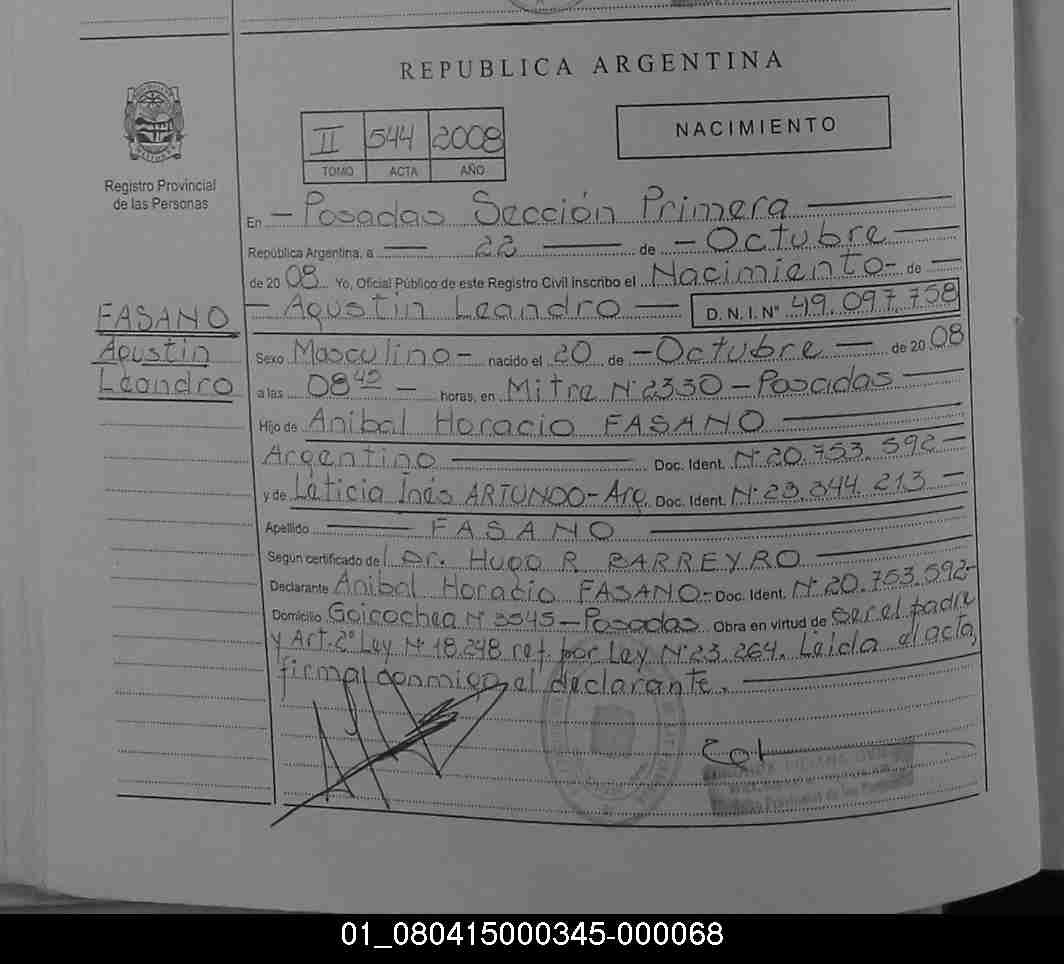 REPUBLICA ARGENTINA
II 544 2008
TOMO ACTA AÑO
NACIMIENTO
Registro Provincial
de las Personas
En - Posadas Sección Primera
República Argentina, a 22 de - Octubre
de 20 08 Yo, Oficial Público de este Registro Civil inscribo el Nacimiento - de
- Agustin Leandro - D. N. I. Nº 49.097.758
FASANO
Agustin
Leandro
Sexo Masculino - nacido el 20 de - Octubre - de 20 08
a las 08 42 - horas, en Mitre Nº 2330 - Posadas
Hijo de Anibal Horacio FASANO
Argentino Doc. Ident. Nº 20.753.592 -
y de Leticia Inés ARTUNDO - Arg. Doc. Ident. Nº 23.344.213 -
Apellido FASANO
Según certificado del Dr. Hugo R. BARREYRO
Declarante Anibal Horacio FASANO - Doc. Ident. Nº 20.753.592 -
Domicilio Goicochea Nº 3545 - Posadas Obra en virtud de Ser el padre
y Art. 2º Ley Nº 18.248 ref. por Ley Nº 23.264. Leida el acta,
firma conmigo el declarante.
01_080415000345-000068